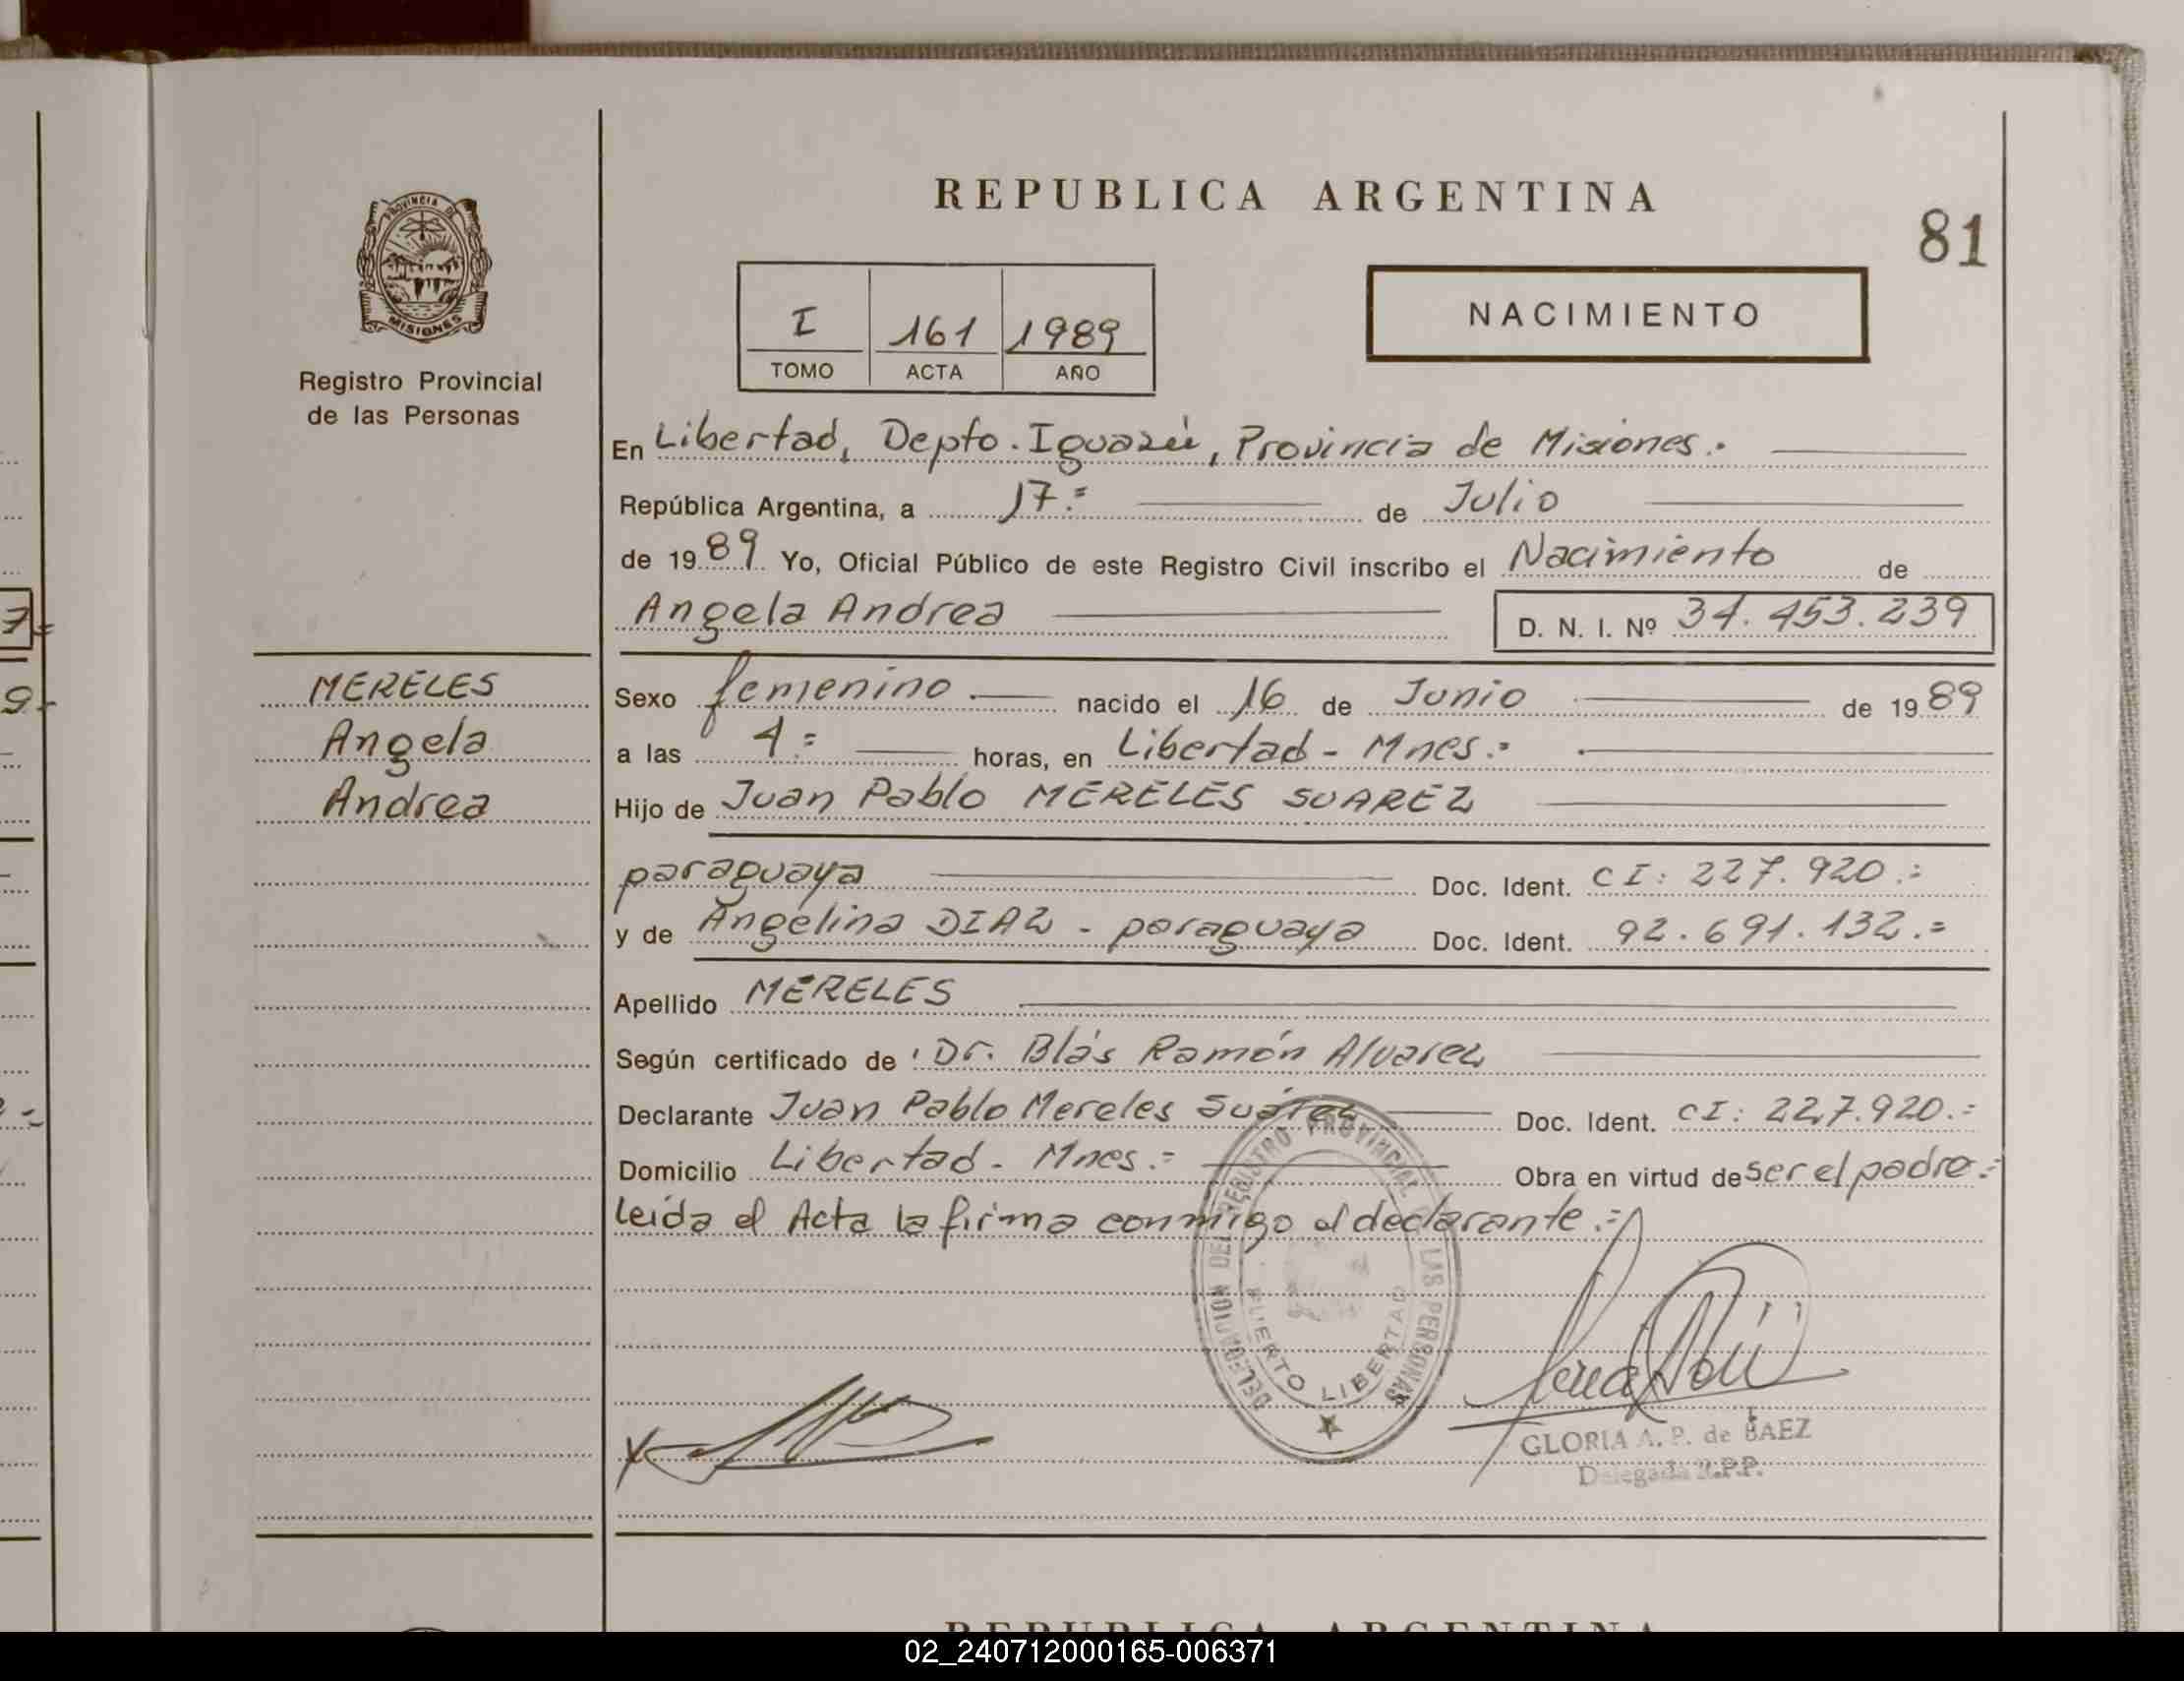 REPUBLICA ARGENTINA
81
PROVINCIA DE
MISIONES
Registro Provincial
de las Personas
I 161 1989
TOMO ACTA AÑO
NACIMIENTO
En Libertad, Depto. Iguazú, Provincia de Misiones.-
República Argentina, a 17.= de Julio
de 1989 Yo, Oficial Público de este Registro Civil inscribo el Nacimiento de
Angela Andrea D. N. I. Nº 34.453.239
MERELES
Angela
Andrea
Sexo femenino.- nacido el 16 de Junio de 1989
a las 4.= horas, en Libertad - Mnes.=
Hijo de Juan Pablo MERELES SUAREZ
paraguaya Doc. Ident. CI: 227.920.=
y de Angelina DIAZ - paraguaya Doc. Ident. 92.691.132.=
Apellido MERELES
Según certificado de Dr. Blás Ramón Alvarez
Declarante Juan Pablo Mereles Suárez Doc. Ident. CI: 227.920.=
Domicilio Libertad - Mnes.= Obra en virtud de ser el padre.=
leída el Acta la firma conmigo el declarante.=
DELEGACION DEL REGISTRO PROVINCIAL DE LAS PERSONAS
PUERTO LIBERTAD
GLORIA A. P. de BAEZ
Delegada R.P.P.
REPUBLICA ARGENTINA
02_240712000165-006371